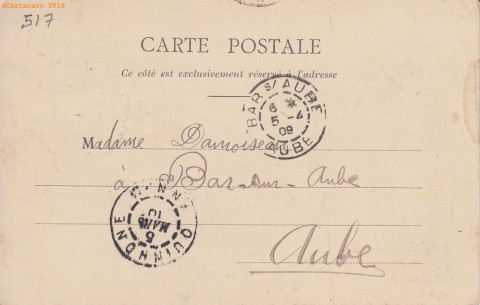 ©Cartacaro 2019
517
CARTE POSTALE
Ce côté est exclusivement réservé à l'adresse
BAR S/ AUBE
6 *
5 -4
09
AUBE
Madame Damoiseau
à Bar-sur-Aube
Aube
QUINHONE
5
MARS
ANNAM